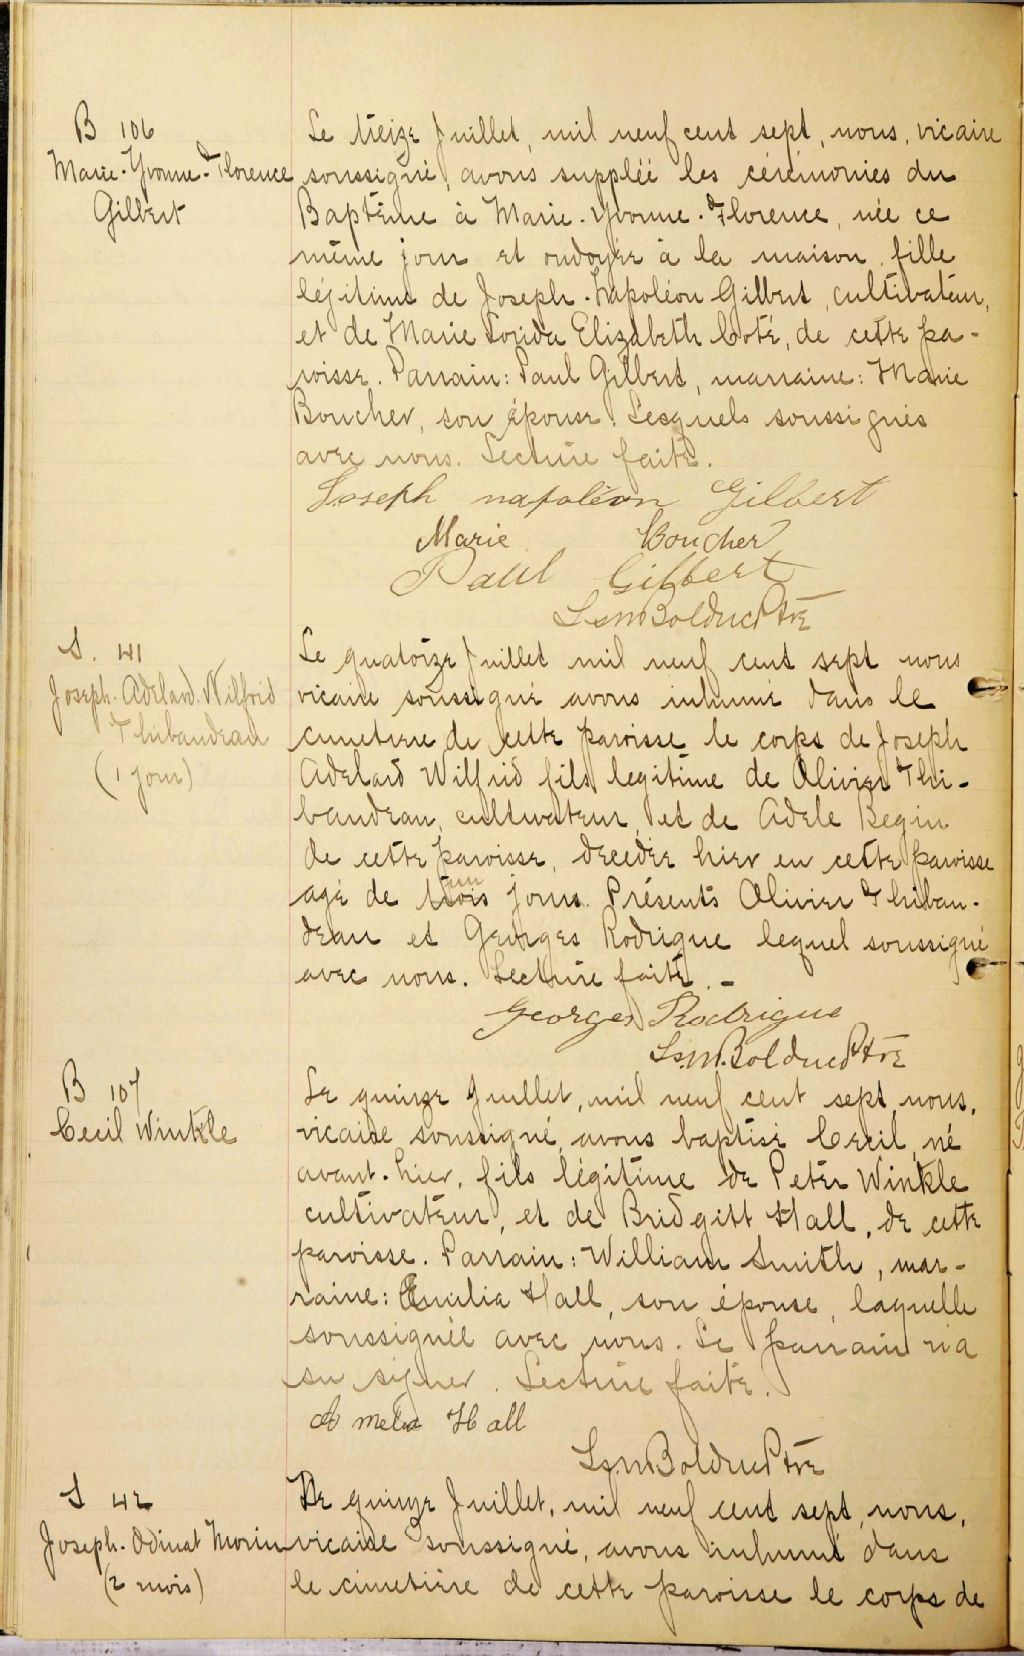 B 106
Marie-Yvonne-Florence
Gilbert
Le treize Juillet, mil neuf cent sept, nous, vicaire
soussigné, avons suppléé les cérémonies du
Baptême à Marie-Yvonne-Florence, née ce
même jour et ondoyée à la maison, fille
légitime de Joseph-Napoléon Gilbert, cultivateur,
et de Marie Elizabeth Coté, de cette pa-
roisse. Parrain: Paul Gilbert, marraine: Marie
Boucher, son épouse. Lesquels soussignés
avec nous. Lecture faite.
Joseph napoléon Gilbert
Marie Boucher
Paul Gilbert
Ls M Bolduc Ptre
S. 41
Joseph-Adelard-Wilfrid
Thibaudeau
(1 jour)
Le quatorze Juillet mil neuf cent sept nous
vicaire soussigné avons inhumé dans le
cimetiere de cette paroisse le corps de Joseph
Adelard Wilfrid fils legitime de Olivier Thi-
baudeau, cultivateur, et de Adele Begin
de cette paroisse, decedée hier en cette paroisse
agé de un jour. Présents Olivier Thibau-
deau et Georges Rodrigue lequel soussigné
avec nous. Lecture faite. -
Georges Rodrigue
Ls M. Bolduc Ptre
B 107
Cecil Winkle
Le quinze Juillet, mil neuf cent sept, nous,
vicaire soussigné, avons baptisé Cecil, né
avant-hier, fils légitime de Peter Winkle
cultivateur, et de Bridgitt Hall, de cette
paroisse. Parrain: William Smith, mar-
raine: Emilia Hall, son épouse, laquelle
soussignée avec nous. Le parrain n'a
su signer. Lecture faite.
Amelia Hall
Ls M Bolduc Ptre
S 42
Joseph-Odinat Morin
(2 mois)
Le quinze Juillet, mil neuf cent sept, nous,
vicaire soussigné, avons inhumé dans
le cimetière de cette paroisse le corps de